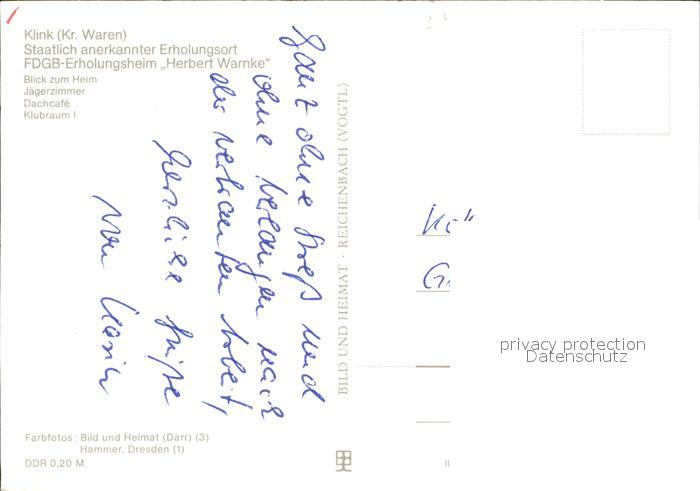 Klink (Kr. Waren)
Staatlich anerkannter Erholungsort
FDGB-Erholungsheim „Herbert Warnke“
Blick zum Heim
Jägerzimmer
Dachcafé
Klubraum I
Ganz ohne Streß und
ohne Verlangen nach
der vertrauten Arbeit,
herzliche Grüße
von
BILD UND HEIMAT · REICHENBACH (VOGTL)
privacy protection
Datenschutz
Farbfotos: Bild und Heimat (Darr) (3)
Hammer, Dresden (1)
DDR 0,20 M